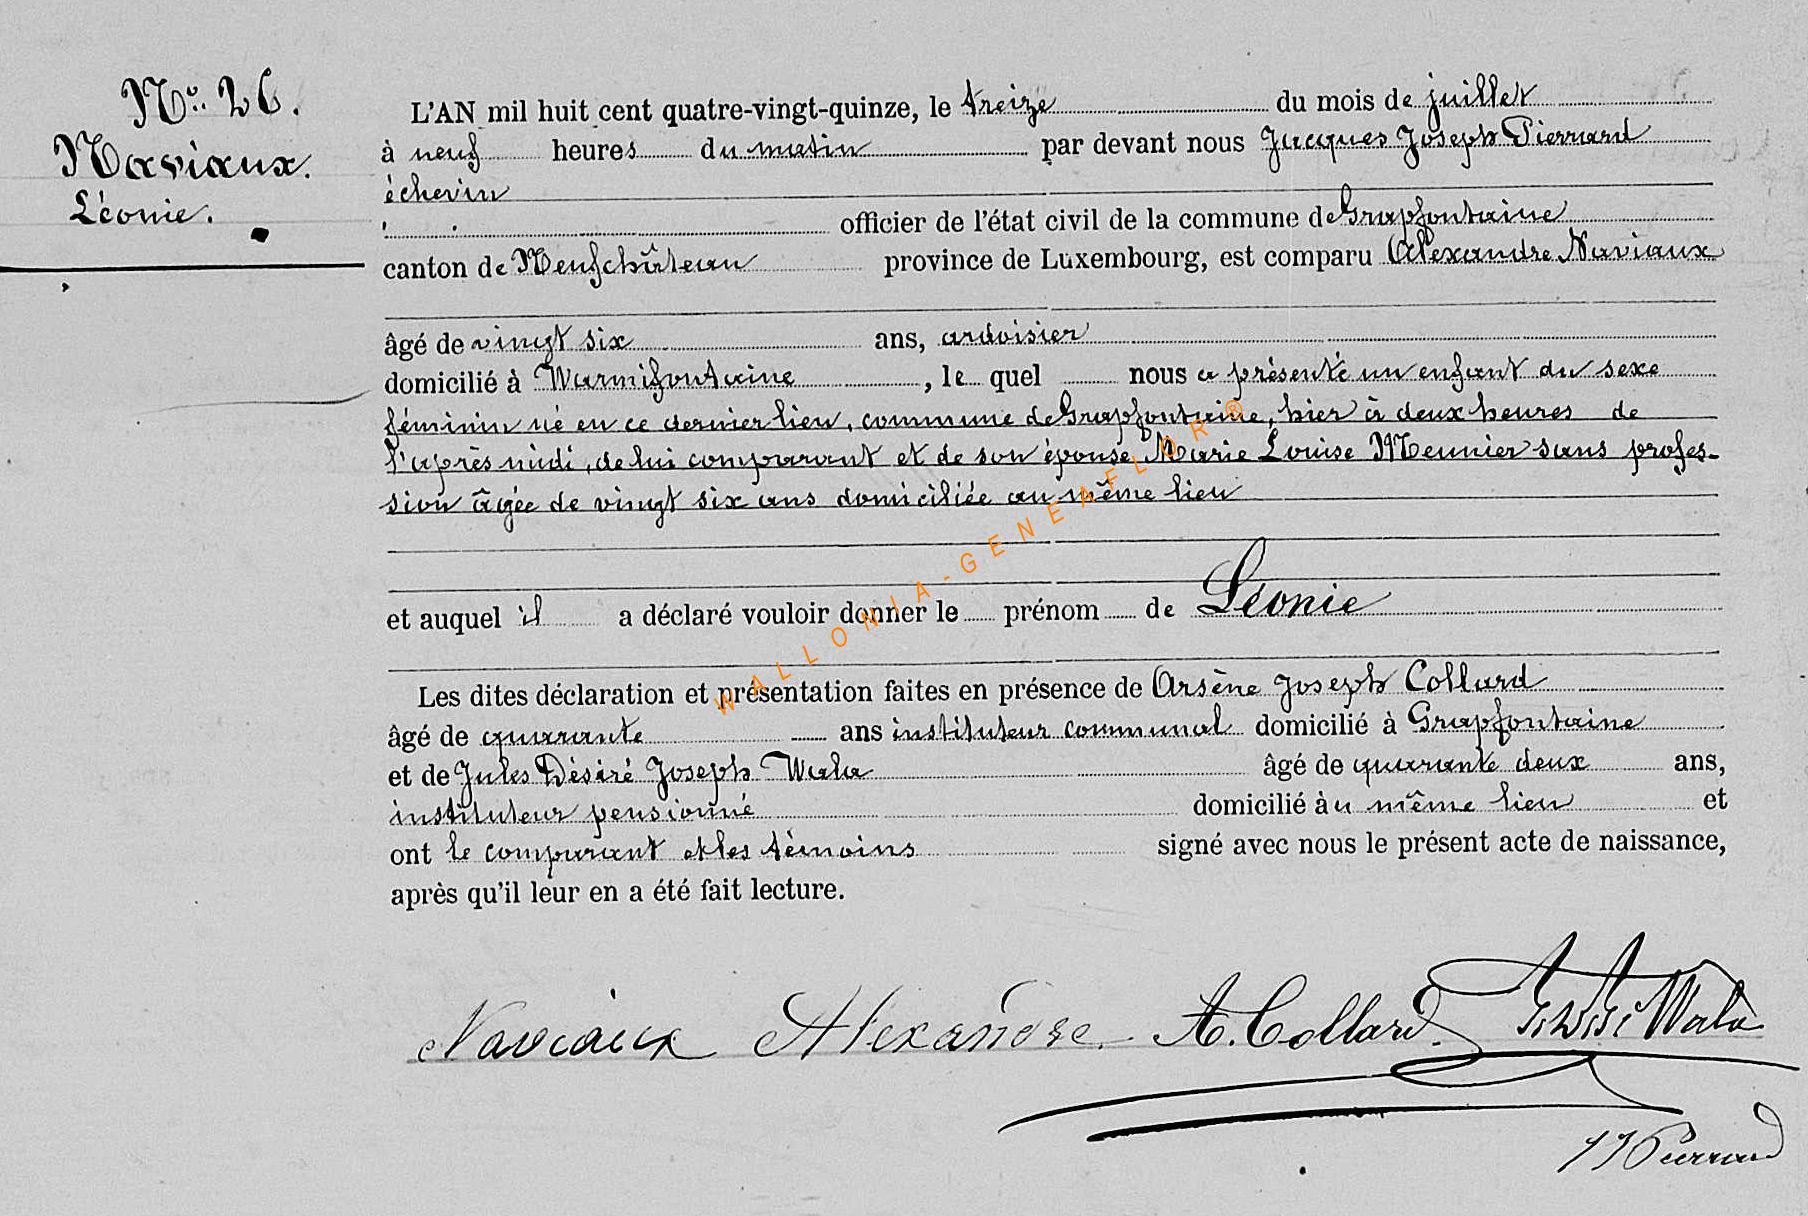 N° 26.
Naviaux.
Léonie.
L'AN mil huit cent quatre-vingt-quinze, le treize du mois de juillet
à neuf heures du matin par devant nous Jacques Joseph Pierrard
échevin
officier de l'état civil de la commune de Grapfontaine
canton de Neufchâteau province de Luxembourg, est comparu Alexandre Naviaux
âgé de vingt six ans, ardoisier
domicilié à Warmifontaine, le quel nous a présenté un enfant du sexe
féminin né en ce dernier lieu, commune de Grapfontaine, hier à deux heures de
l'après midi, de lui comparant et de son épouse Marie Louise Meunier sans profes-
sion âgée de vingt six ans domiciliée au même lieu
et auquel il a déclaré vouloir donner le prénom de Léonie
Les dites déclaration et présentation faites en présence de Arsène Joseph Collard
âgé de quarante ans instituteur communal domicilié à Grapfontaine
et de Jules Désiré Joseph Wala âgé de quarante deux ans,
instituteur pensionné domicilié àu même lieu et
ont le comparant et les témoins signé avec nous le présent acte de naissance,
après qu'il leur en a été fait lecture.
Naviaux Alexandre. A. Collard. Wala
JJ Pierrard
WALLONIA-GENEAFLOR®